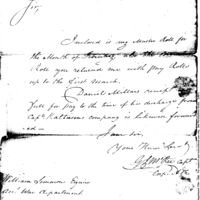 Sir,
Inclosed is my Muster Roll for
the Month of
Role you returned me with pay Rolls
up to the last march.
Daniel Millers receipt
full for pay to the time of his discharge from
Capt. company is likewise forward
ed—
I am Sir,
Your Hum. Serv.
Capt
William Simmons Esquire
War Department